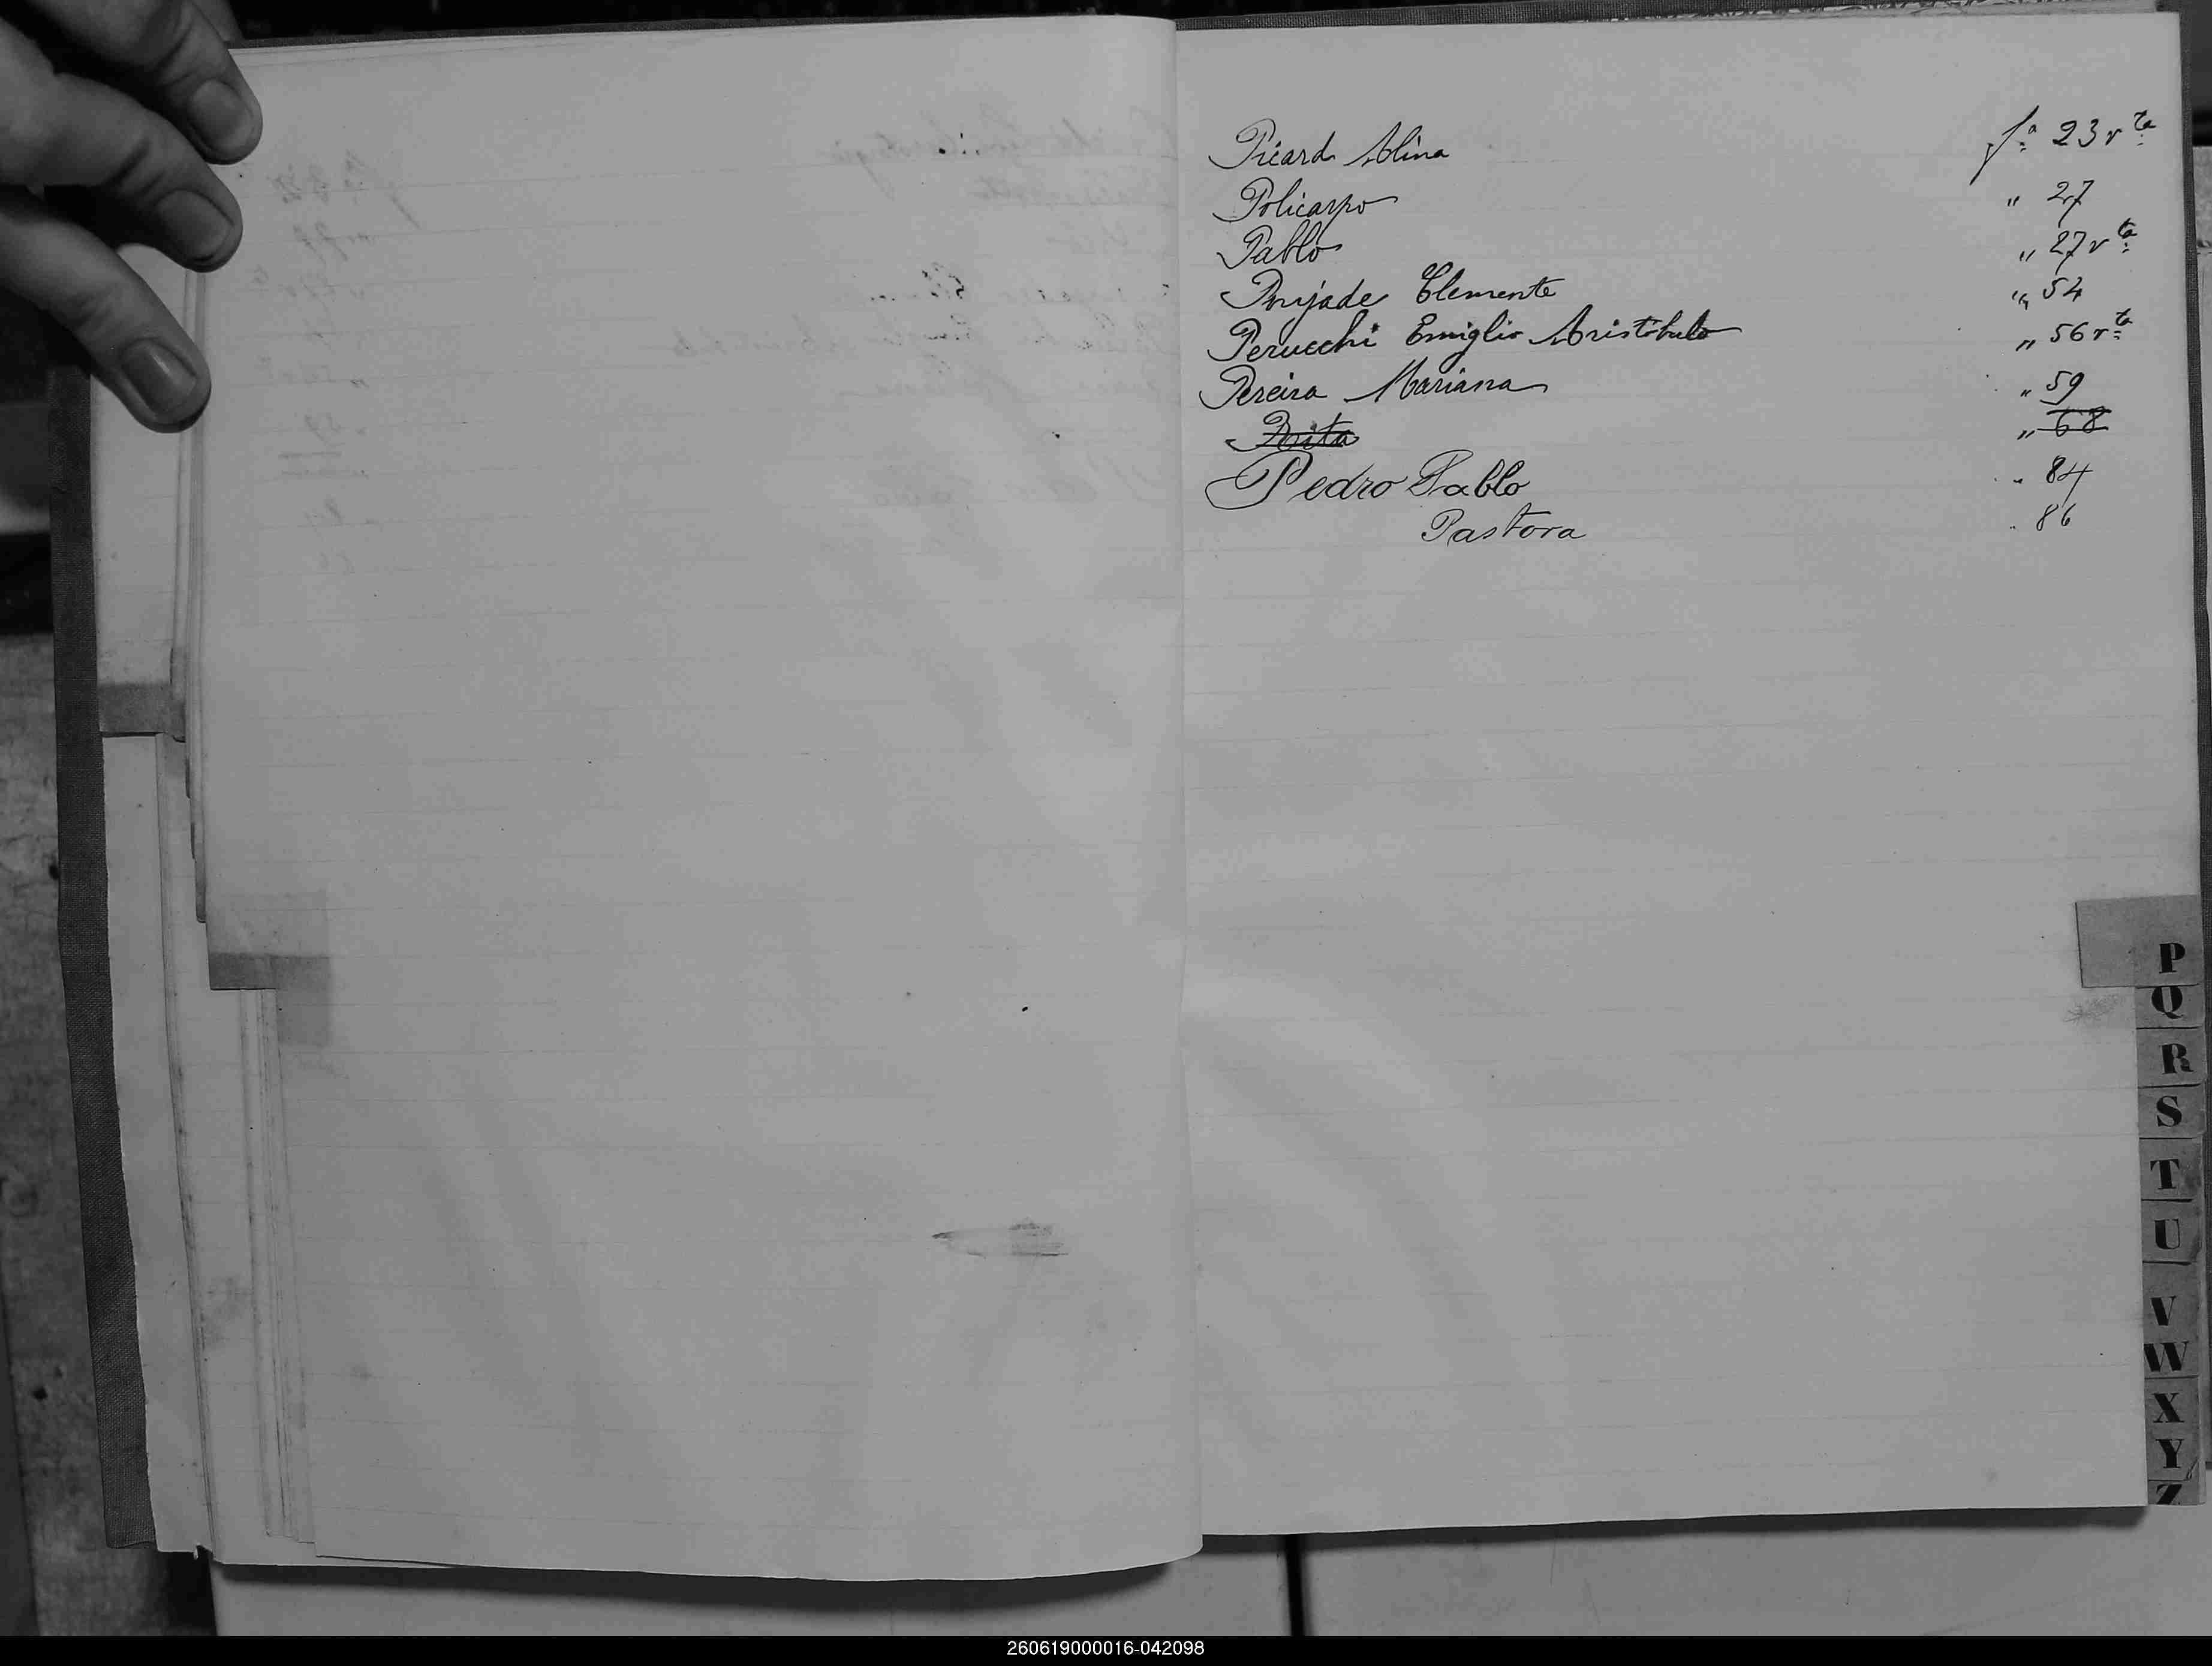 Picard Alina fº 23 vta
Policarpo " 27
Pablo " 27 vta
Pujade Clemente " 54
Perucchi Emiglio Aristóbulo " 56 vta
Pereira Mariana " 59
" 68
Pedro Pablo " 84
Pastora " 86
P
Q
R
S
T
U
V
W
X
Y
Z
260619000016-042098